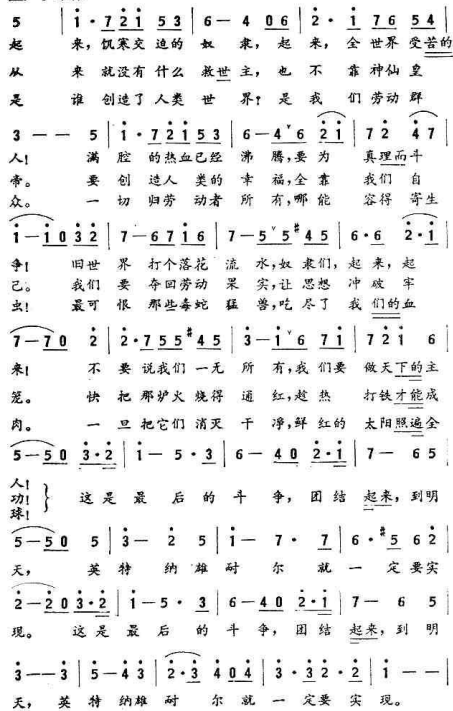 5 | 1·7 2 1 5 3 | 6— 4 0 6 | 2· 1 7 6 5 4 |
起 来,饥寒交迫的 奴 隶,起 来,全世界受苦的
从 来就没有什么 救世主,也 不 靠神仙皇
是 谁创造了人类 世界?是我 们劳动群
3 — — 5 | 1·7 2 1 5 3 | 6—4 6 2 1 | 7 2 4 7 |
人! 满 腔的热血已经 沸 腾,要为 真理而斗
帝。 要创造人类的 幸 福,全靠 我们自
众。 一切归劳动者 所 有,哪能 容得寄生
1—1 0 3 2 | 7—6 7 1 6 | 7—5 5 #4 5 | 6·6 2·1 |
争! 旧世 界 打个落花 流 水,奴隶们,起来,起
己。 我们 要 夺回劳动 果 实,让思想 冲破牢
虫! 最可 恨 那些毒蛇 猛 兽,吃尽了 我们的血
7—7 0 2 | 2·7 5 5 #4 5 | 3—1 6 7 1 | 7 2 1 6 |
来! 不 要说我们一无 所 有,我们要 做天下的主
笼。 快 把那炉火烧得 通 红,趁热 打铁才能成
肉。 一 旦把它们消灭 干 净,鲜红的 太阳照遍全
5—5 0 3·2 | 1— 5·3 | 6— 4 0 2·1 | 7— 6 5
人!
功! 这是最 后的斗 争,团结 起来,到明
球!
5—5 0 5 | 3— 2 5 | 1— 7· 7 | 6·#5 6 2 |
天, 英特 纳雄耐 尔 就一 定要实
2—2 0 3·2 | 1—5·3 | 6—4 0 2·1 | 7— 6 5 |
现。 这是最 后的斗 争,团结 起来,到 明
3——3 | 5—4 3 | 2·3 4 0 4 | 3·3 2·2 | 1 — — |
天,英特 纳雄耐 尔就一定要实 现。